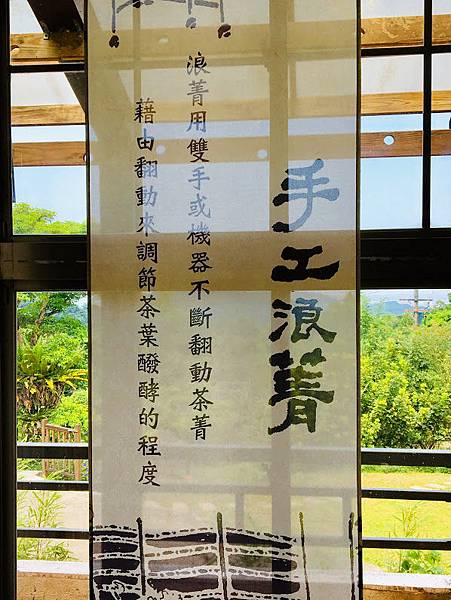 手工浪菁
浪菁用雙手或機器不斷翻動茶菁
藉由翻動來調節茶葉醱酵的程度